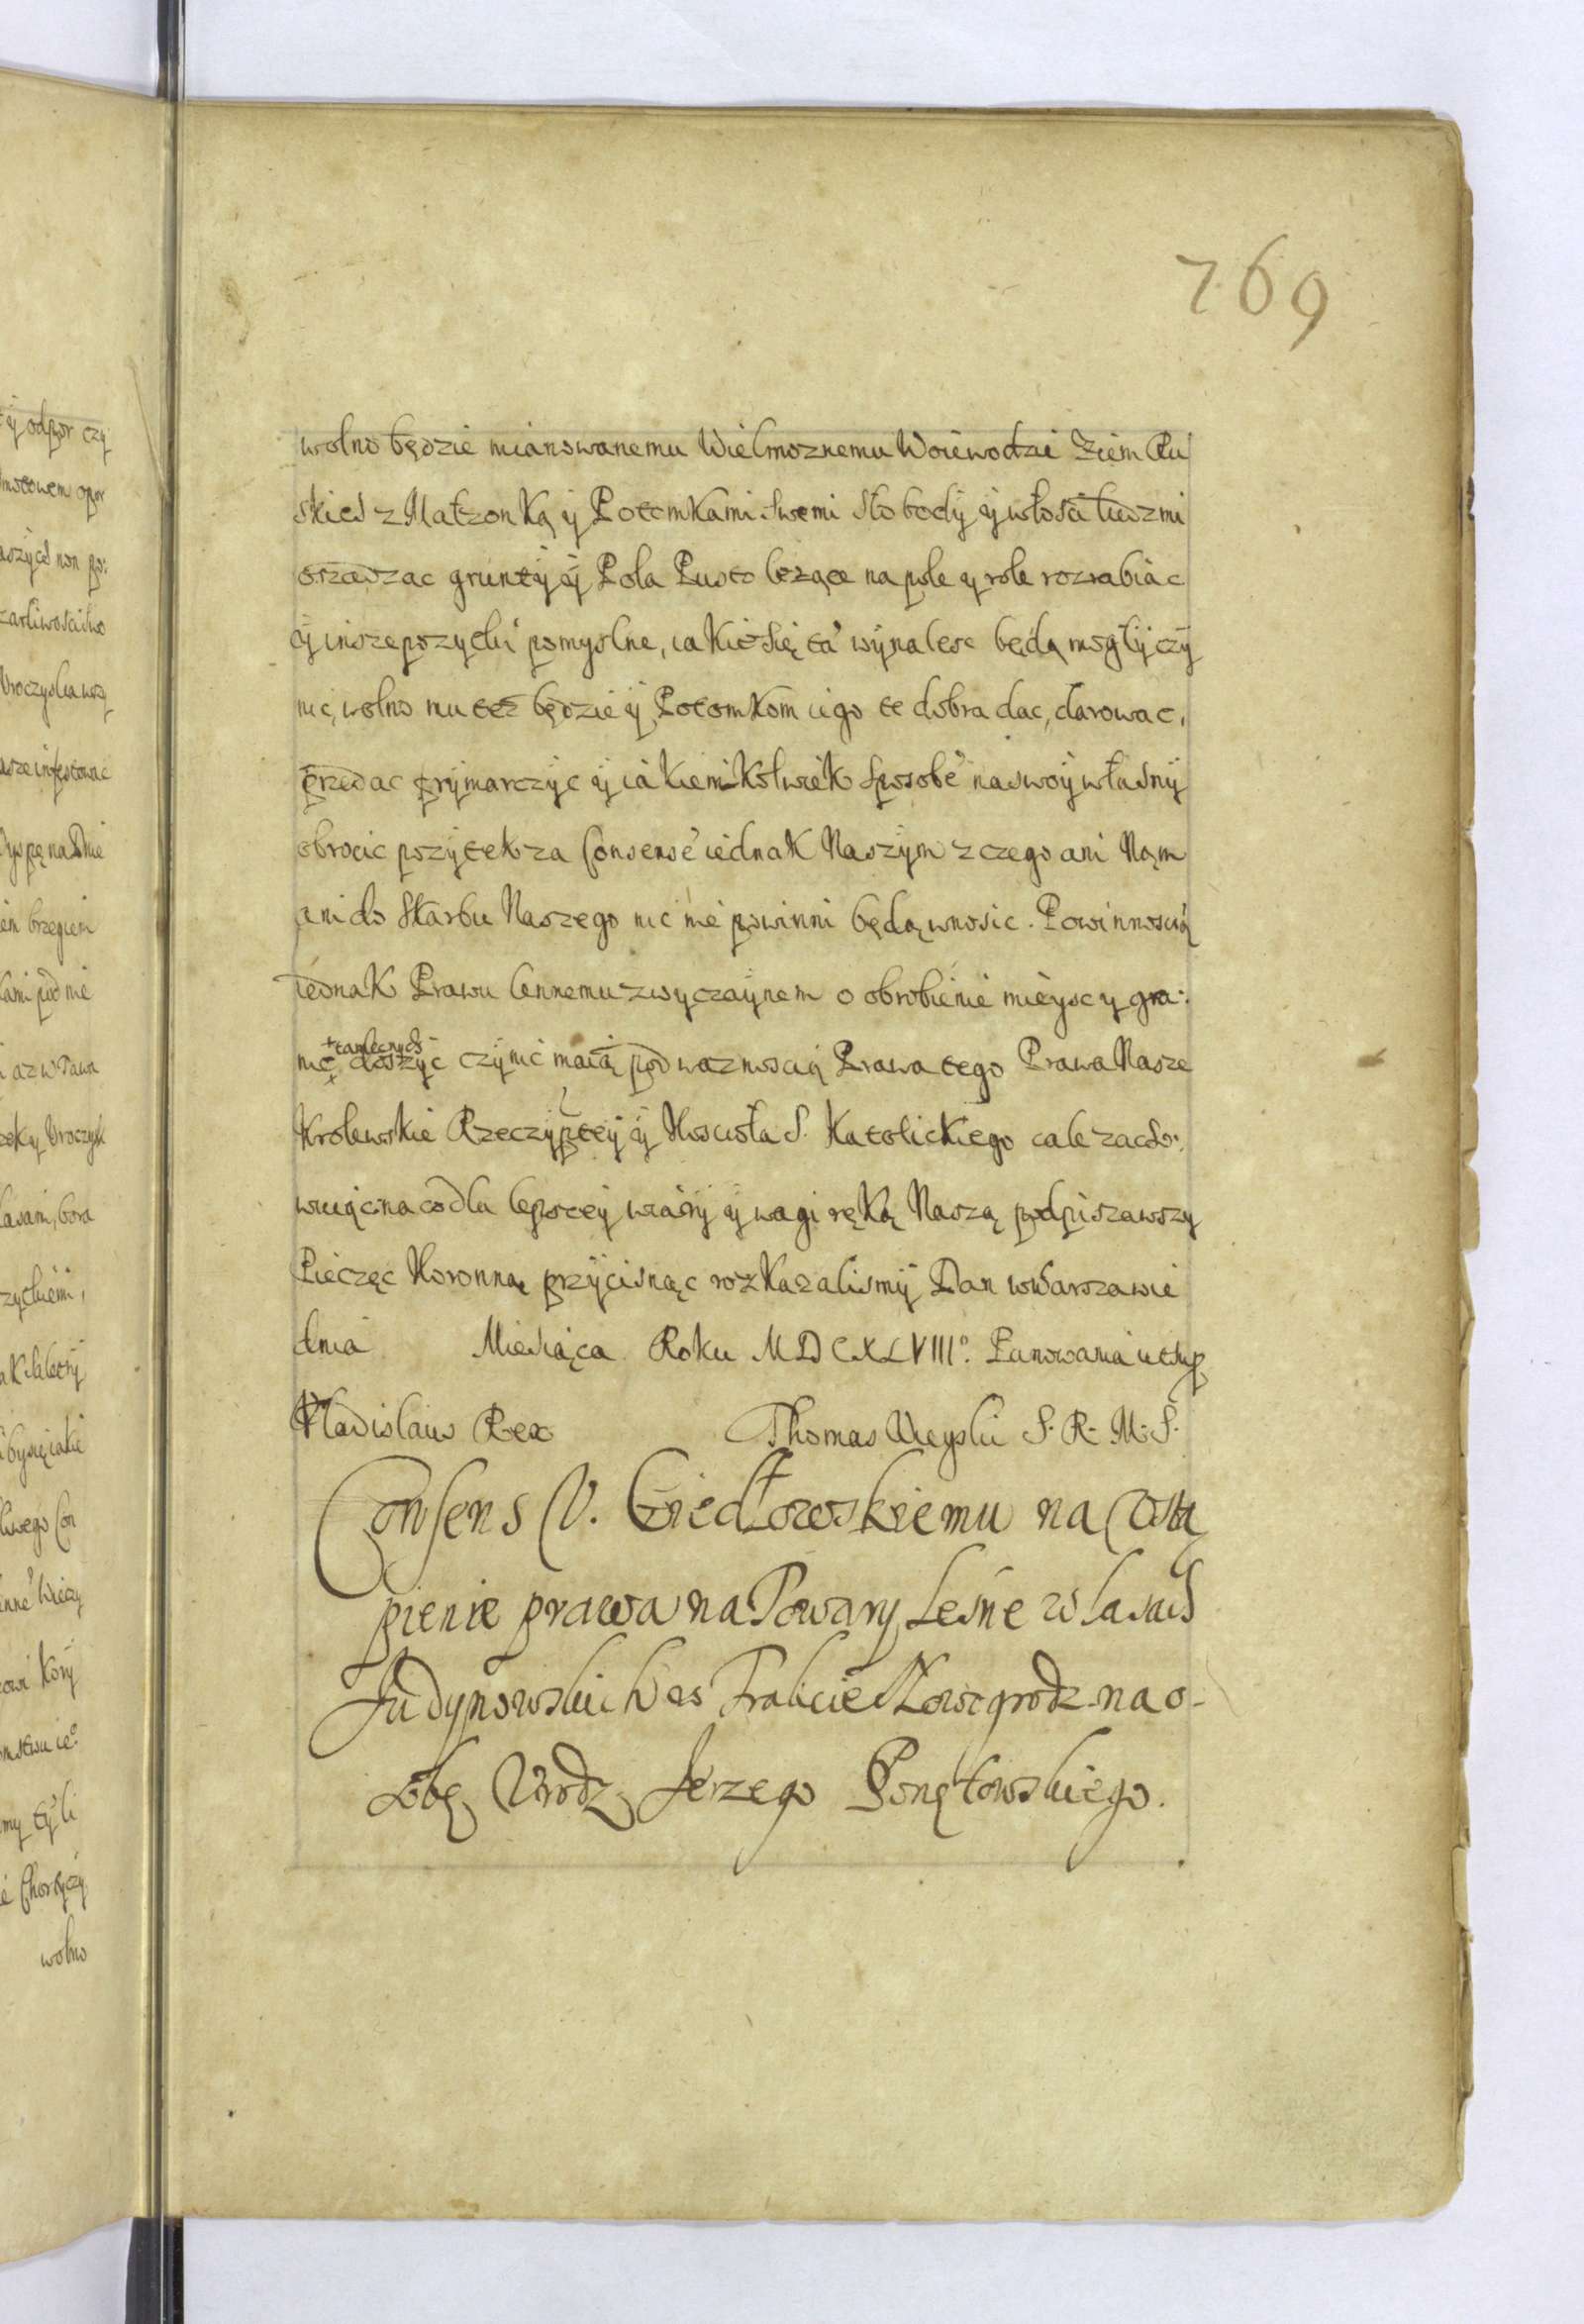 769
wolno będzie mianowanemu Wielmoznemu Woiewodzie Ziem Ru
skich z Małzonką y Potomkami swemi Słobody y włosci ludzmi
osadzac grunty y Pola Pusto lezące na pole y role rozrabiac
y insze pozytki pomyslne, iakie się ta' wynalesc będą mogły czy
nic, wolno mu tez będzie y Potomkom iego te dobra dac, darowac,
przedac frymarczyc y iakiemkolwiek sposobe' na swoy własny
obrocic pozytek za Consense' iednak Naszym z czego ani Nam
ani do Skarbu Naszego nic nie powinni będą wnosic. Powinnoscią
iednak Prawu lennemu zwyczaynem o obrobienie mieysc y gra:
nic +tamecznych doszyc czynic maią pod waznoscią Prawa tego Prawa Nasze
Krolewskie Rzeczyptey y Koscioła S. Katolickiego cale zacho:
wuiąc na co dla lepszey wiary y wagi ręką Naszą podpisawszy
Pieczęc Koronną przycisnąc rozkazalismy Dan w Warszawie
dnia Miesiąca Roku MDCXLVIII° Panowania ut sup
Vladislaus Rex Thomas Uieyski S. R. M. S.
Consens U. Giedłowskiemu na Ustą
pienie prawa na Towary Leśne w lasach
Judynowskich w Trakcie Nowogrodz. na o-
sobę Urodz Jerzego Ponętowskiego.
y odpor czy
Uroczyska wszą
Wyspę na Dnie
brzegiem
azw Tawa
y Uroczysk
lasami, bora
Chortyczy
wolno